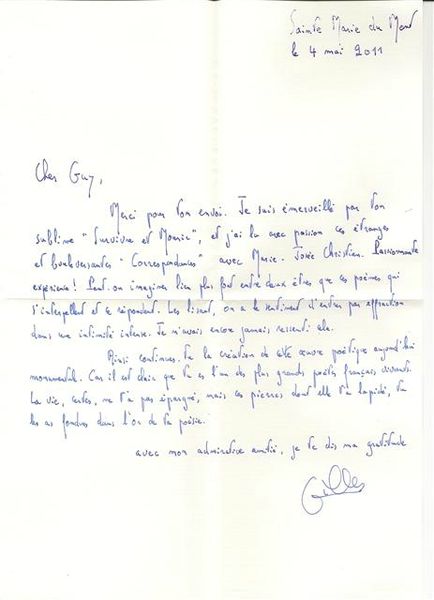 Sainte Marie du Mont
le 4 mai 2011
Cher Guy,
Merci pour ton envoi. Je suis émerveillé par ton
sublime "Survivre et Mourir", et j'ai lu avec passion ces étranges
et bouleversantes "Correspondances" avec Marie-Josée Christien. Passionnante
expérience! Peut-on imaginer lien plus fort entre deux êtres que ces poèmes qui
s'interpellent et se répondent. Les lisant, on a le sentiment d'entrer par effraction
dans une intimité intense. Je n'avais encore jamais ressenti cela.
Ainsi continues-tu la création de cette œuvre poétique aujourd'hui
monumentale. Car il est clair que tu es l'un des plus grands poètes français vivants.
La vie, certes, ne t'a pas épargné, mais ces pierres dont elle t'a lapidé, tu
les as fondues dans l'or de ta poésie.
avec mon admirative amitié, je te dis ma gratitude
Gilles